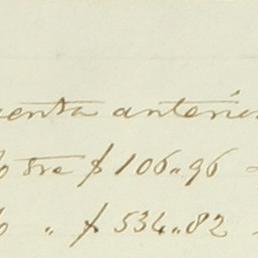 uenta anterio
% sre $ 106.,96
% „ $ 534.,82